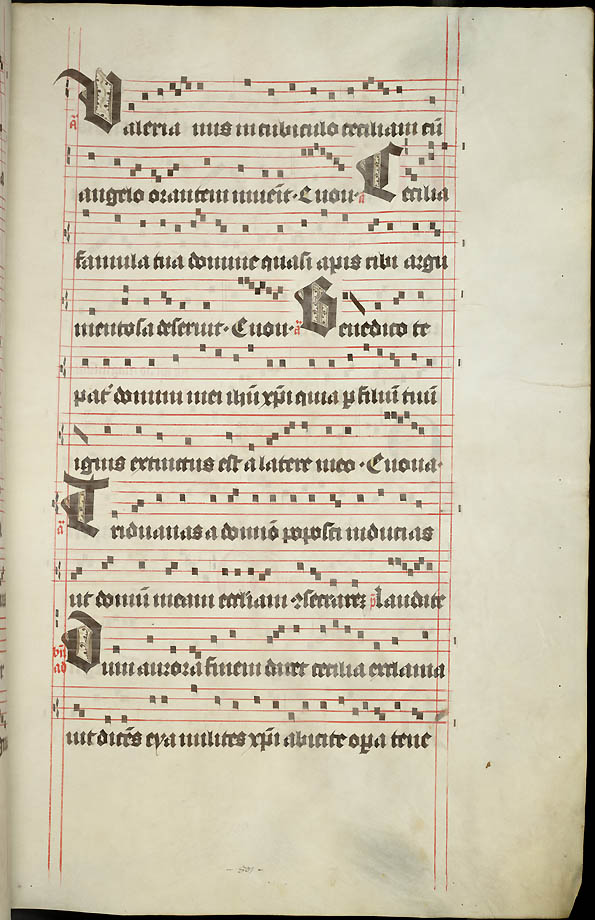 Valeria nus in cubiculo ceciliam cū
angelo orantem inuenit · Euou · Cecilia
famula tua domine quasi apis tibi argu
mentosa deseruit · Euou · Benedico te
pat' domini mei ihū xp̄i quia p filiū tuū
ignis extinctus est a latere meo · Euoua ·
Triduanas a domīo poposci inducias
ut domū meam eccliam
laudite
Dum aurora finem daret cecilia exclama
uit dicēs eya milites xp̄i abicite opa tene